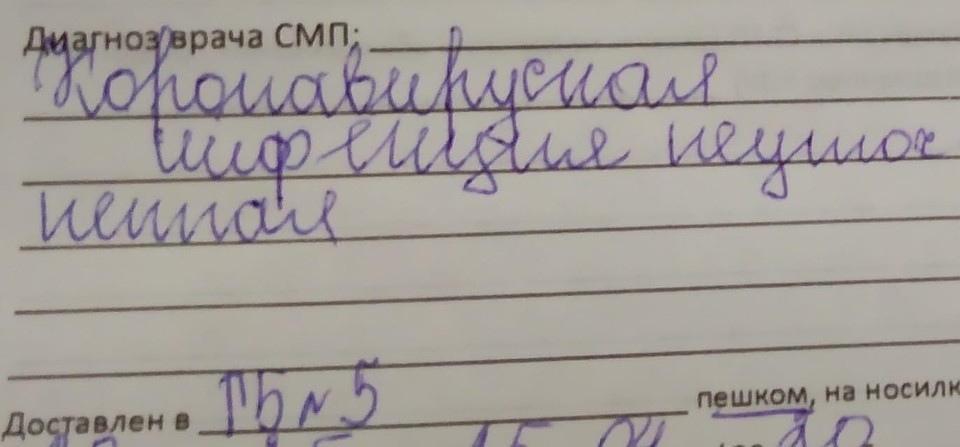 Диагноз врача СМП:
Коронавирусная
инфекция неуточ
ненная
Доставлен в ГБ №5 пешком, на носилк